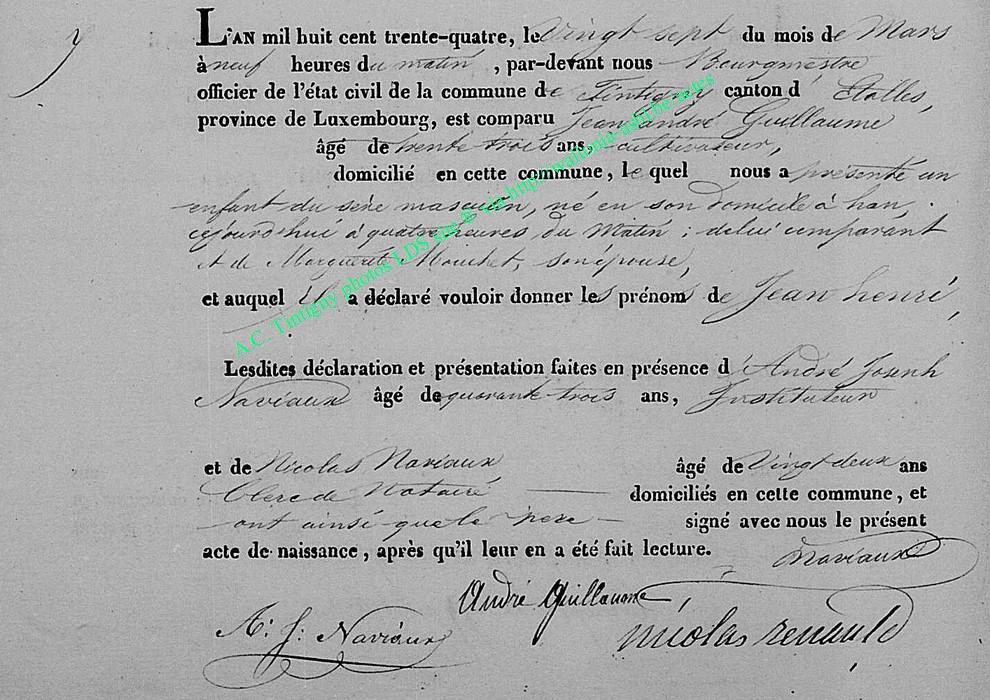 y
L'AN mil huit cent trente-quatre, le Vingt sept du mois de Mars
à neuf heures du matin, par-devant nous Bourgmestre
officier de l'état civil de la commune de Tintigny canton d'Etalles,
province de Luxembourg, est comparu Jean andré Guillaume
âgé de trente trois ans, cultivateur,
domicilié en cette commune, le quel nous a présenté un
enfant du sèxe masculin, né en son domicile à han,
cejourd'hui à quatre heures du Matin ; delui comparant
et de Margueritt Mouchet, son épouse,
et auquel il a déclaré vouloir donner les prénoms de Jean henri,
Lesdites déclaration et présentation faites en présence d'André Joseph
Naviaux âgé de quarante trois ans, Instituteur
et de Nicolas Naviaux âgé de Vingt deux ans
Clerc de Notaire domiciliés en cette commune, et
ont ainsi que le père signé avec nous le présent
acte de naissance, après qu'il leur en a été fait lecture.
Naviaux
André Guillaume,
A: J: Naviaux
nicolas renauld
A.C. Tintigny photos LDS site © via http://wallonia-asbl.be-actes